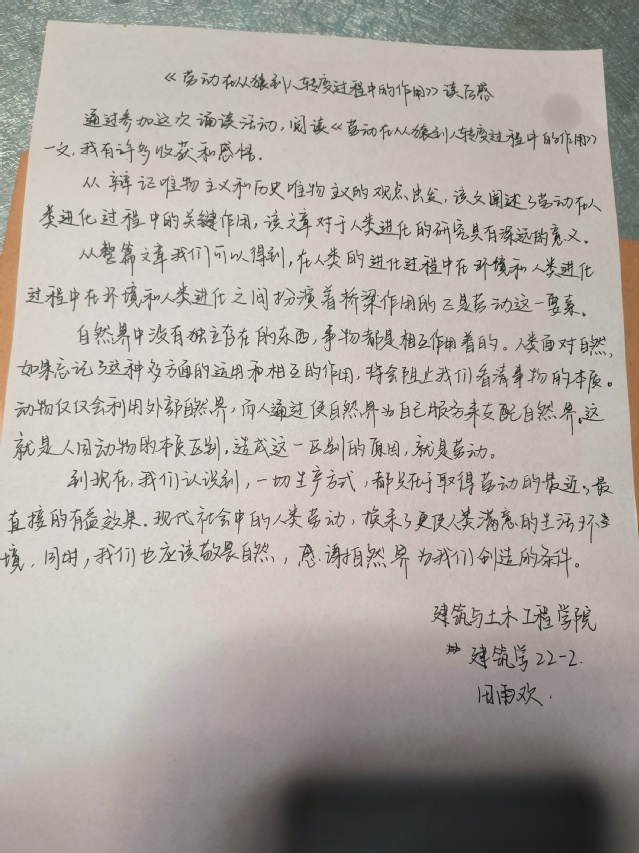 《劳动在从猿到人转变过程中的作用》读后感
通过参加这次诵读活动，阅读《劳动在从猿到人转变过程中的作用》
一文，我有许多收获和感悟.
从辩证唯物主义和历史唯物主义的观点出发，该文阐述了劳动在人
类进化过程中的关键作用，该文章对于人类进化的研究具有深远的意义.
从整篇文章我们可以得到，在人类的进化过程中在环境和人类进化
过程中在环境和人类进化之间扮演着桥梁作用的正是劳动这一要素.
自然界中没有独立存在的东西，事物都是相互作用着的。人类面对自然，
如果忘记了这种多方面的运用和相互的作用，将会阻止我们看清事物的本质。
动物仅仅会利用外部自然界，而人通过使自然界为自己服务来支配自然界。这
就是人同动物的本质区别，造成这一区别的原因，就是劳动。
到现在，我们认识到，一切生产方式，都只在于取得劳动的最近、最
直接的有益效果.现代社会中的人类劳动，换来了更使人类满意的生活环
境.同时，我们也应该敬畏自然，感谢自然界为我们创造的条件。
建筑与土木工程学院
建筑学22-2.
田雨欢.